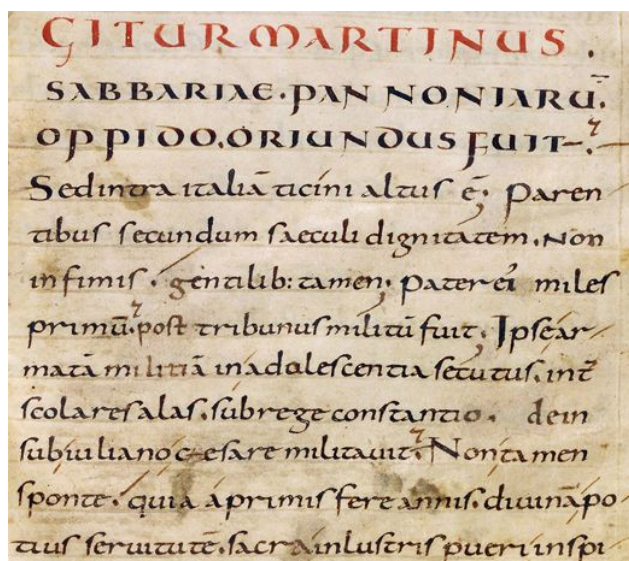 GITUR MARTINUS.
SABBARIAE. PANNONIARŪ.
OPPIDO. ORIUNDUS FUIT.
Sed intra italiā ticini altus ē; Paren
tibus secundum saeculi dignitatem. Non
infimis. gentilib: tamen; Pater ei miles
primū. post tribunus militū fuit; Ipse ar
matā militiā in adolescentia secutus. int̄
scolares alas. sub rege constantio. dein
sub iuliano cęsare militavit. Non tamen
sponte. quia a primis fere annis. divinā po
tius servitutē. sacra inlustris pueri inspi